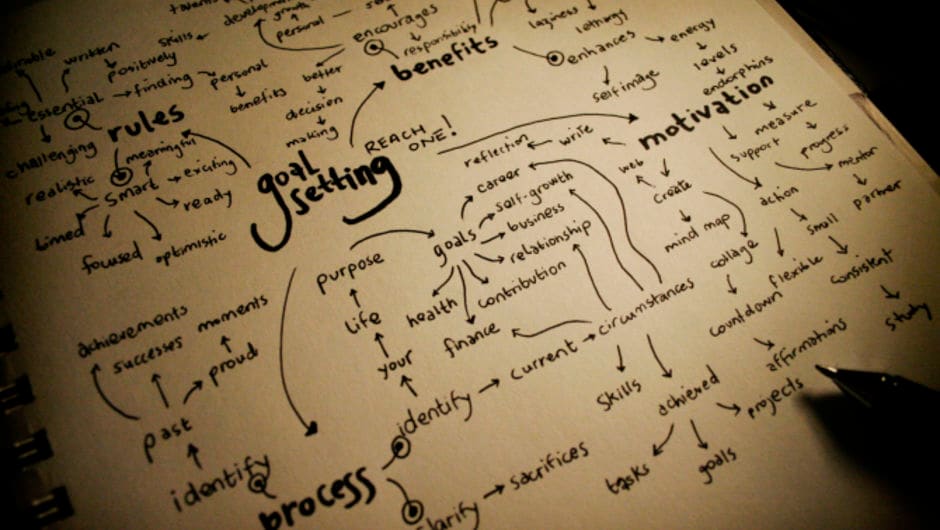 talents
development
growth
personal
skills
encourages
responsibility
benefits
laziness
lethargy
enhances
energy
levels
endorphins
self image
better
decision
making
written
positively
essential
finding
personal
benefits
rules
challenging
meaningful
realistic
smart
exciting
ready
timed
focused
optimistic
goal
setting
REACH
ONE!
motivation
reflection
write
web
create
mind map
collage
countdown
affirmations
measure
progress
support
mentor
partner
action
small
consistent
study
flexible
purpose
life
your
identify
goals
career
self-growth
business
relationship
contribution
health
finance
current
circumstances
skills
achieved
projects
tasks
goals
achievements
successes
moments
proud
past
identify
process
clarify
sacrifices